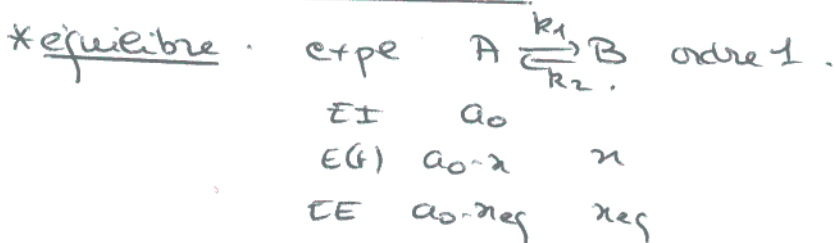 * équilibre . exple A ⇌ B ordre 1 .
k1
k2 .
EI a0
E(t) a0-x x
EE a0-xeq xeq